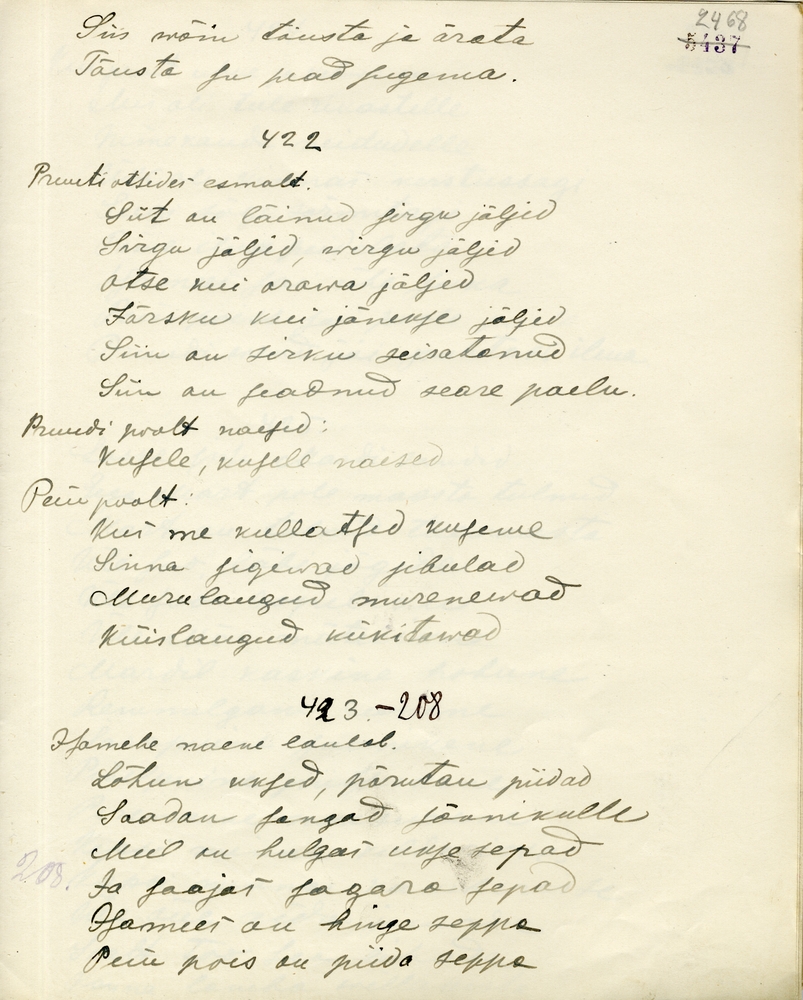 2468
5437
Siis wõin tõusta ja ärata
Tõusta su pead sugema.
422
Pruuti otsides esmalt.
Siit on läinud sirgu jäljed
Sirgu jäljed, wirgu jäljed
otse kui orawa jäljed
Järsku kui jänekse jäljed
Siin on sirku seisatanud
Siin on seadnud seare paelu.
Pruudi poolt naesed:
Kusele, kusele naesed
Peiu poolt:
Kus me kullatsed kuseme
Sinna sigiwad sibulad
Murulaugud murenewad
Küislaugud kükitawad
423.-208
Isamehe naene laulab.
Lõhun uksed, põrutan piidad
Saadan sengad jõunikulle
Meil on hulgas ukse sepad
208.
Ja saajas sagara sepad
Isamees on hinge seppa
Peiu pois on piida seppa